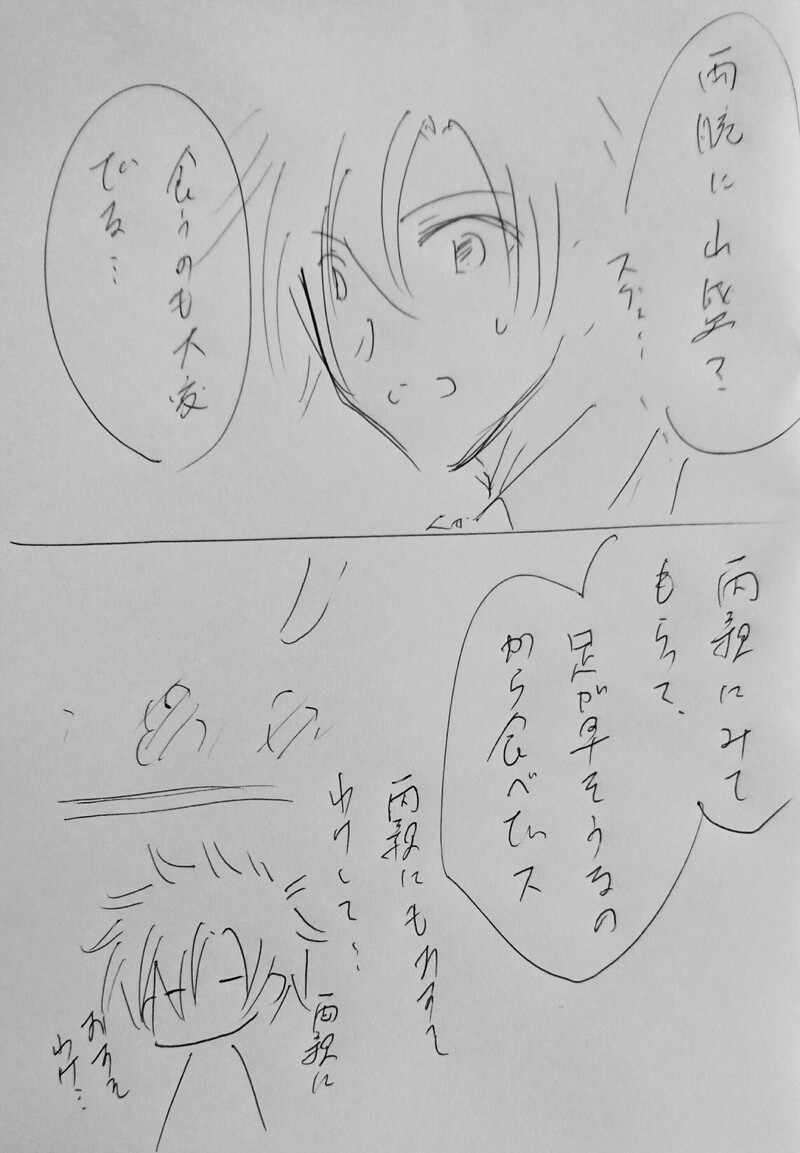 両腕に山盛?
スチュ…
食うのも大変
でる…
両親にみて
もらって、
足が早そうなの
から食べてス
両親にもおすそ
わけして…
両親に
おすそ
わけ…